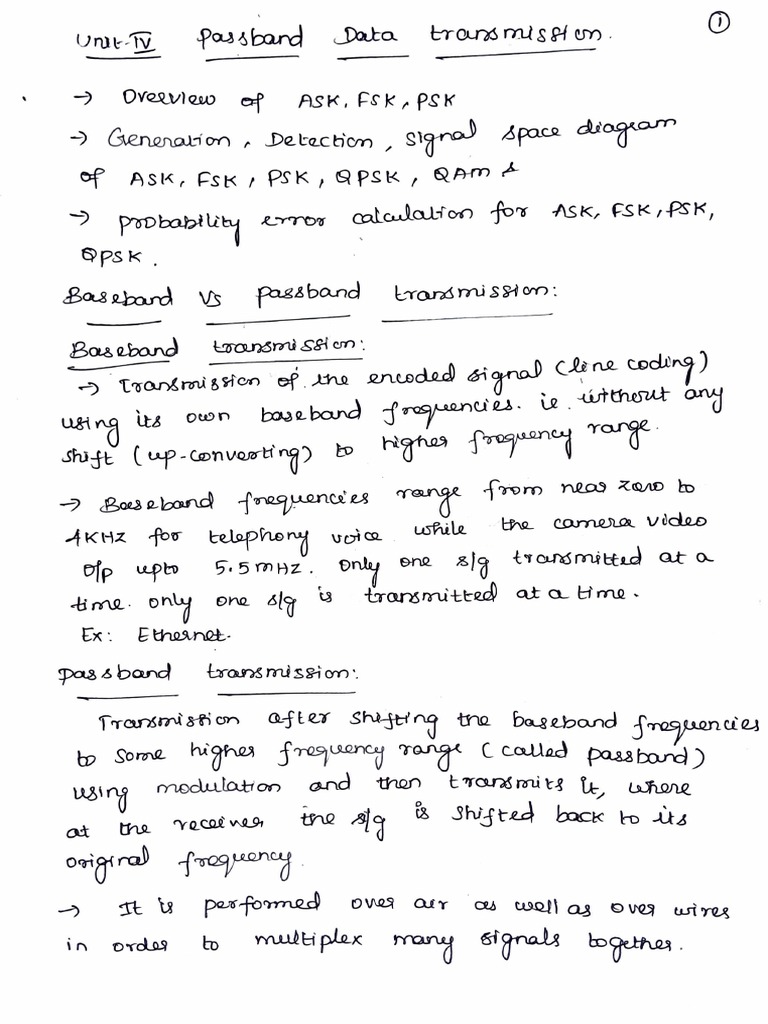 ①
Unit-IV Passband Data transmission.
→ Overview of ASK, FSK, PSK
→ Generation, Detection, signal space diagram
of ASK, FSK, PSK, QPSK, QAM &
→ probability error calculation for ASK, FSK, PSK,
QPSK.
Baseband Vs passband transmission:
Baseband transmission:
→ Transmission of the encoded signal (line coding)
using its own baseband frequencies. ie. without any
shift (up-converting) to higher frequency range.
→ Baseband frequencies range from near zero to
4KHz for telephony voice while the camera video
o/p upto 5.5MHz. only one s/g transmitted at a
time. only one s/g is transmitted at a time.
Ex: Ethernet.
passband transmission:
Transmission after shifting the baseband frequencies
to some higher frequency range (called passband)
using modulation and then transmits it, where
at the receiver the s/g is shifted back to its
original frequency.
→ It is performed over air as well as over wires
in order to multiplex many signals together.